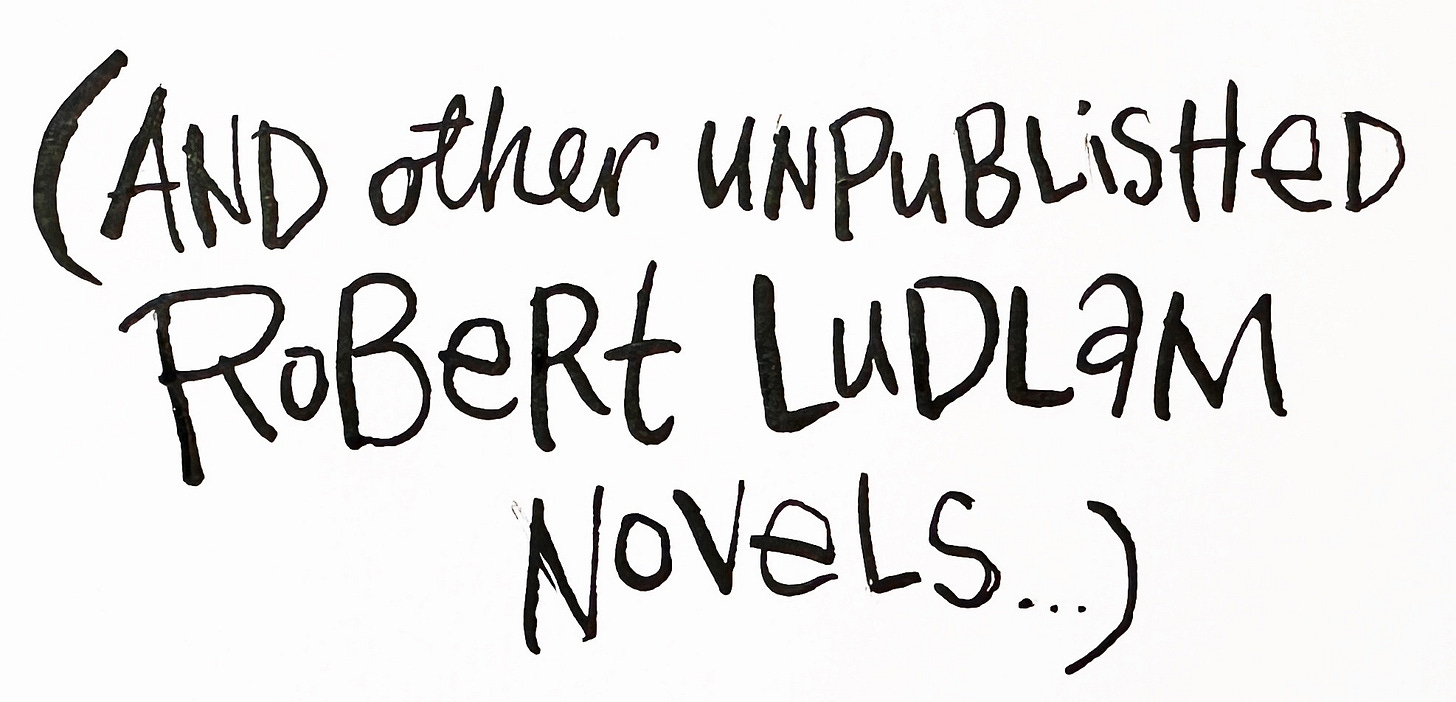 (AND other UNPuBLiSHeD
RoBeRt LuDLaM
NoVeLS...)